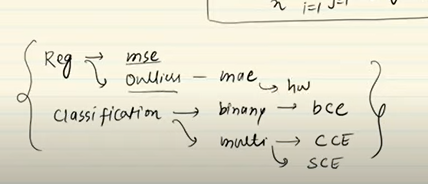 n i=1 j=1
Reg → mse
outliers - mae → hu
Classification → binary → bce
multi → CCE
SCE